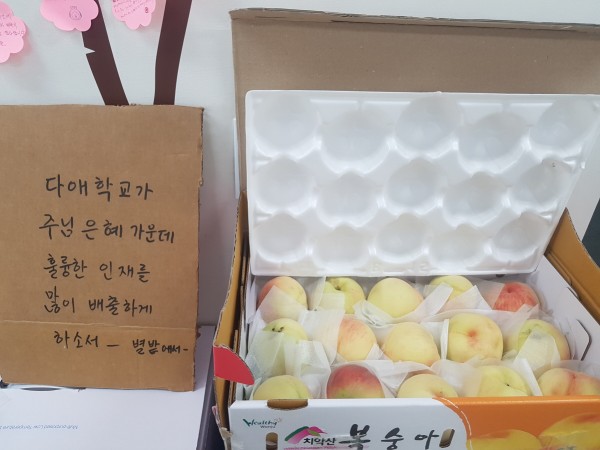 다애학교가
주님 은혜 가운데
훌륭한 인재를
많이 배출하게
하소서 - 별밭에서-
Healthy
치악산 복숭아